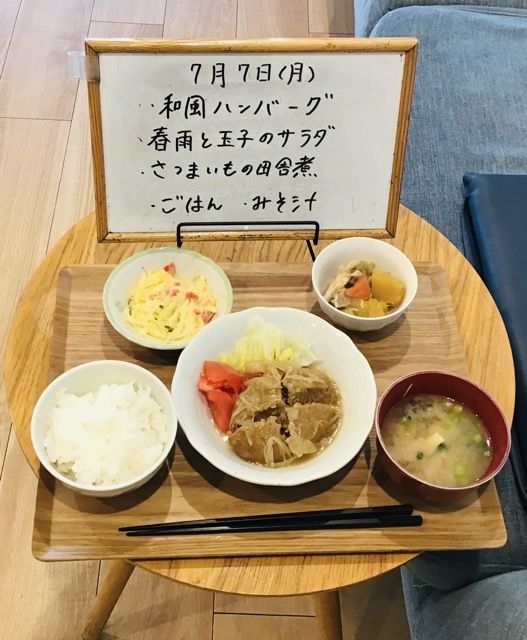 7月7日(月)
・和風ハンバーグ
・春雨と玉子のサラダ
・さつまいもの田舎煮
・ごはん ・みそ汁